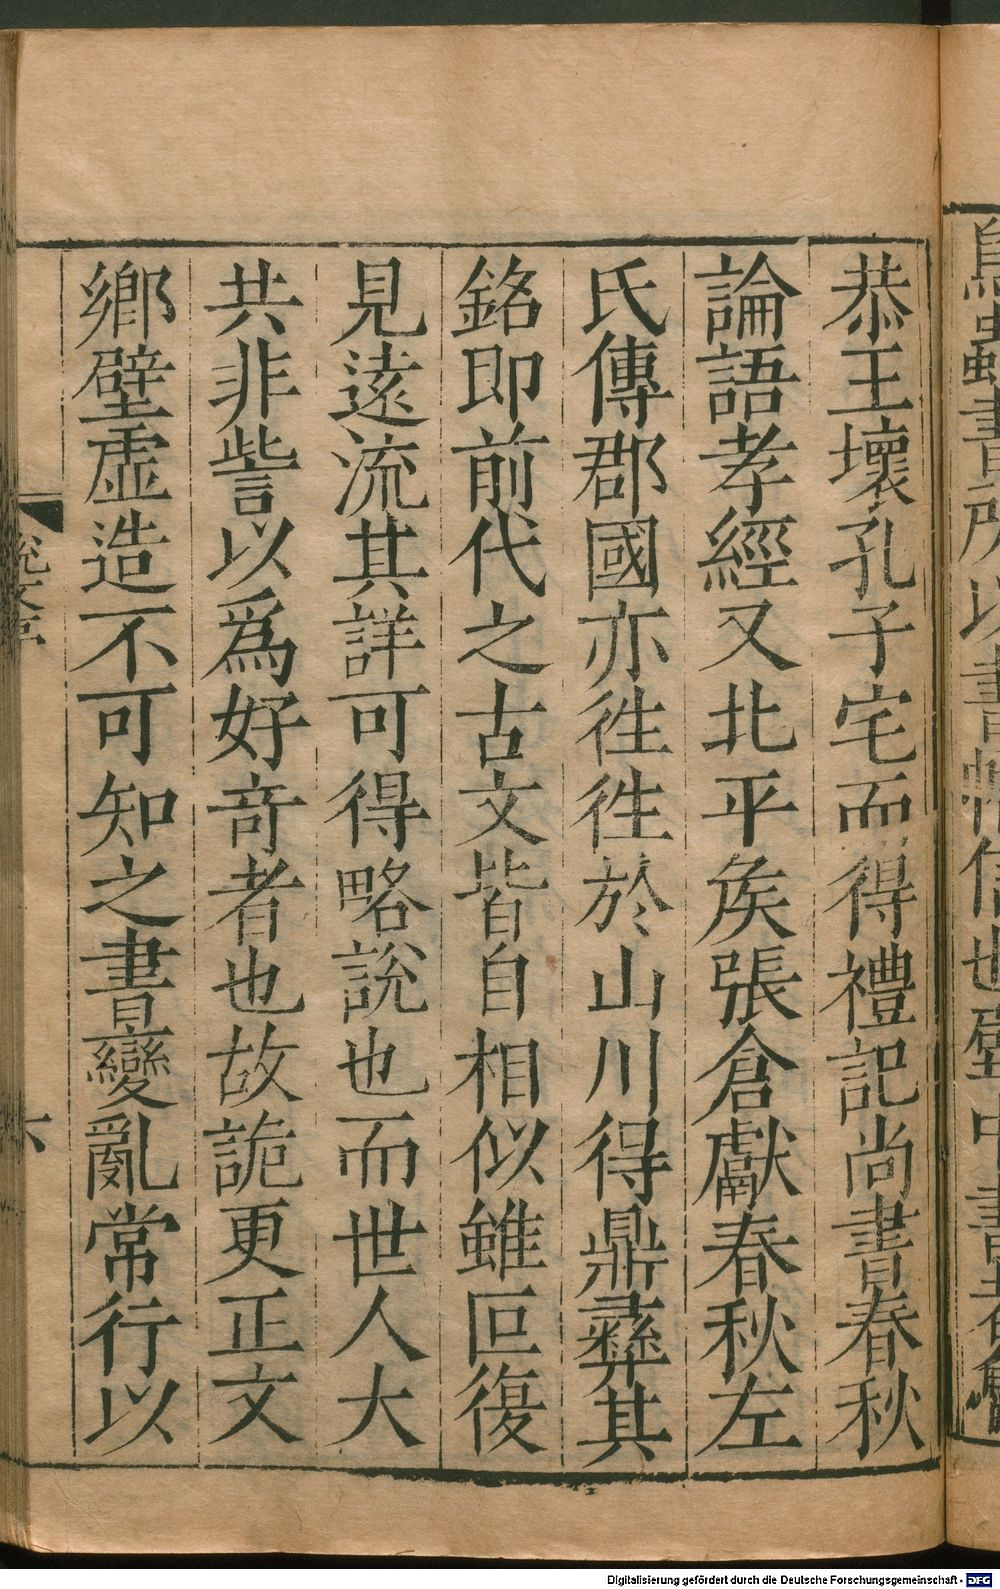 鳥蟲書所以書幡信也壁中書者魯
恭王壞孔子宅而得禮記尚書春秋
論語孝經又北平矦張倉獻春秋左
氏傳郡國亦徃徃於山川得鼎彝其
銘即前代之古文皆自相似雖叵復
見遠流其詳可得略說也而世人大
共非訾以爲好奇者也故詭更正文
鄉壁虛造不可知之書變亂常行以
說文序
六
Digitalisierung gefördert durch die Deutsche Forschungsgemeinschaft - DFG